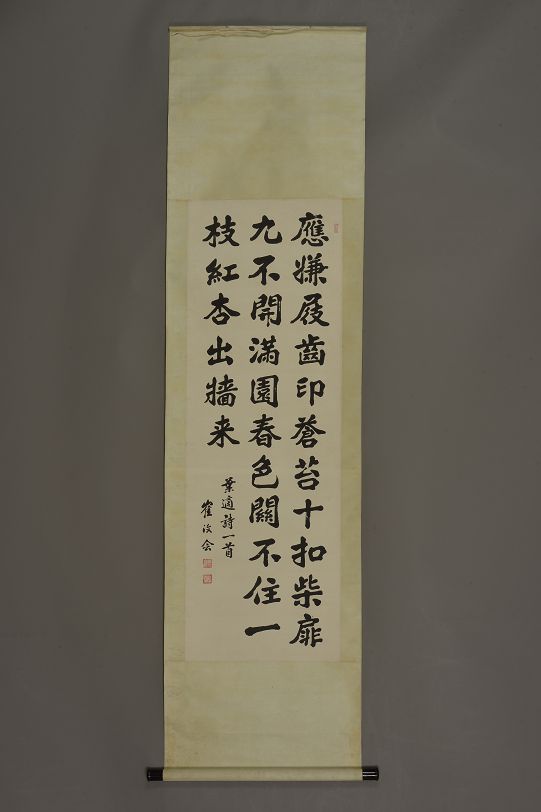 應嫌屐齒印蒼苔十扣柴扉
九不開滿園春色關不住一
枝紅杏出墻来
葉適詩一首